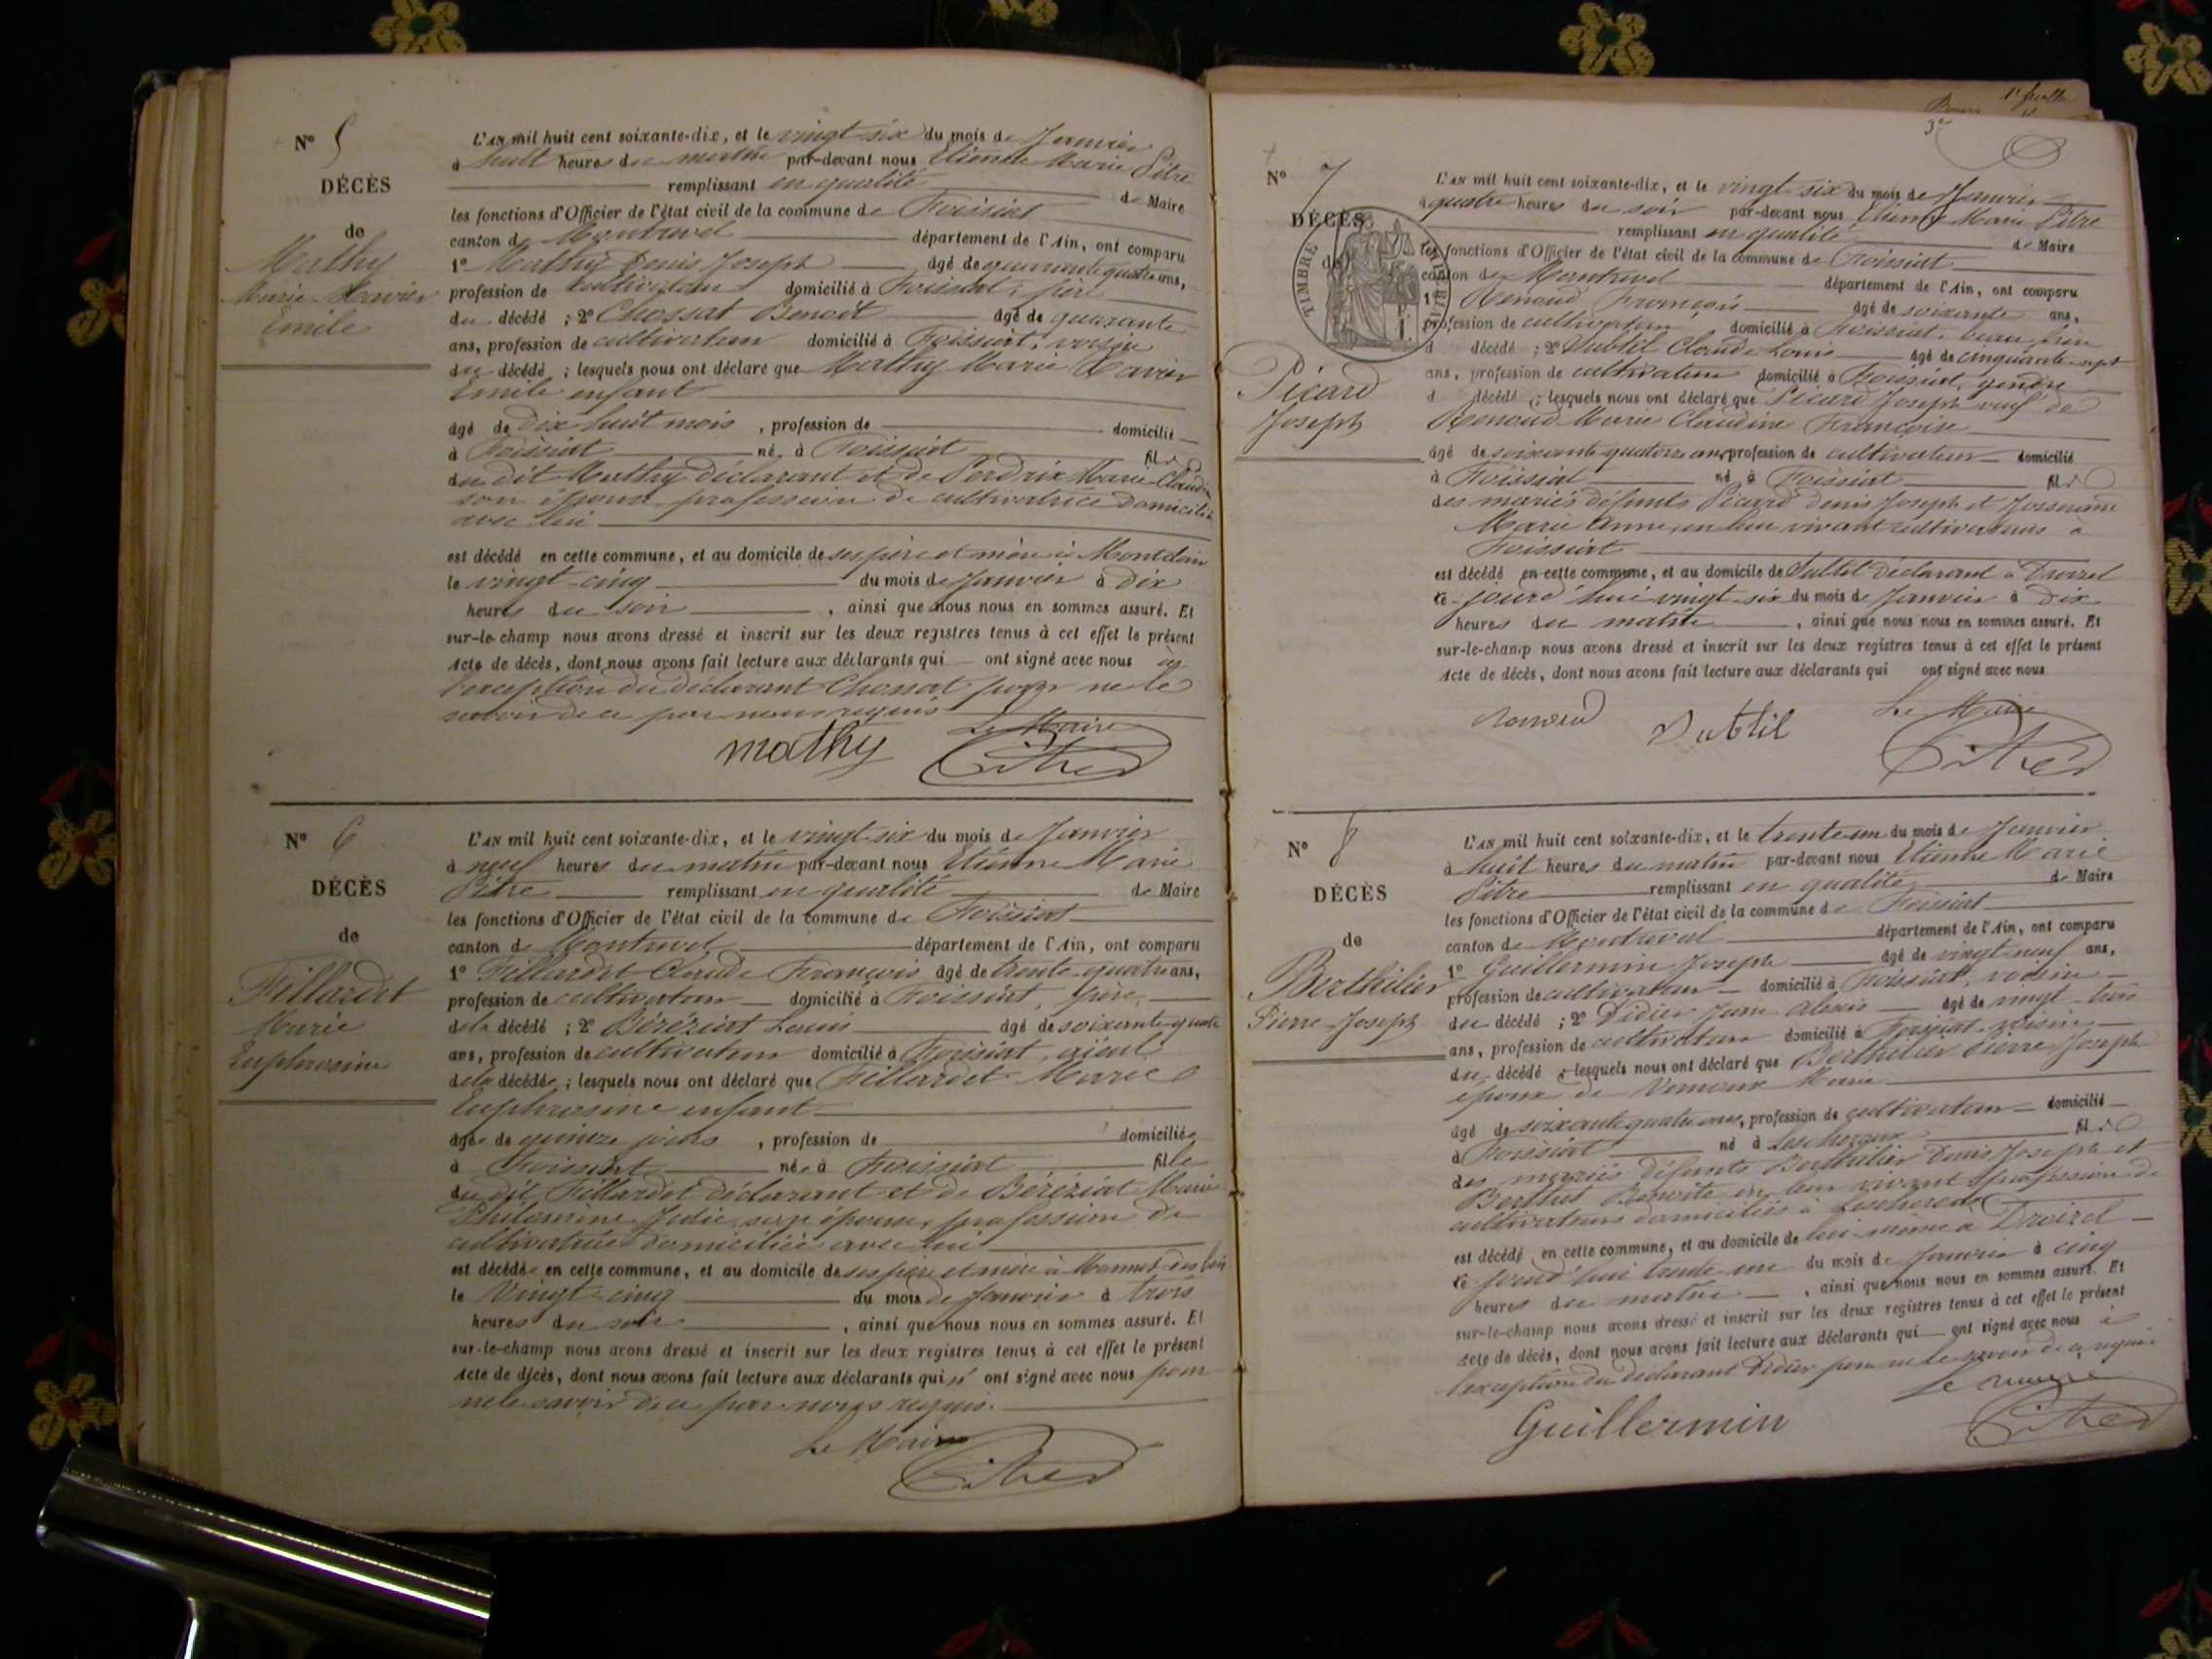 N° 5
DÉCÈS
de
Mathy
Marie Xavier
Emile
L'AN mil huit cent soixante-dix, et le vingt six du mois de Janvier
à huit heures du matin par-devant nous Etienne Marie Pitre
remplissant en qualité de Maire
les fonctions d'Officier de l'état civil de la commune de Foissiat
canton de Montrevel département de l'Ain, ont comparu
1° Mathy Denis Joseph âgé de quarante quatre ans,
profession de cultivateur domicilié à Foissiat, père
du décédé ; 2° Chossat Benoit âgé de quarante
ans, profession de cultivateur domicilié à Foissiat, voisin
du décédé ; lesquels nous ont déclaré que Mathy Marie Xavier
Emile enfant
âgé de Dix huit mois , profession de domicilié
à Foissiat né à Foissiat fils
du dit Mathy déclarant et de Perdrix Marie Claudine
son épouse profession de cultivatrice domiciliée
avec lui
est décédé en cette commune, et au domicile de ses père et mère à Montclair
le vingt-cinq du mois de Janvier à Dix
heures du soir , ainsi que nous nous en sommes assuré. Et
sur-le-champ nous avons dressé et inscrit sur les deux registres tenus à cet effet le présent
Acte de décès, dont nous avons fait lecture aux déclarants qui ont signé avec nous à
l'exception du déclarant Chossat pour ne le
savoir de ce par nous requis
Le Maire
mathy Pitre
N° 6
DÉCÈS
de
Fillardet
Marie
Euphrosine
L'AN mil huit cent soixante-dix, et le vingt six du mois de Janvier
à neuf heures du matin par-devant nous Etienne Marie
Pitre remplissant en qualité de Maire
les fonctions d'Officier de l'état civil de la commune de Foissiat
canton de Montrevel département de l'Ain, ont comparu
1° Fillardet Claude François âgé de trente-quatre ans,
profession de cultivateur domicilié à Foissiat, père
de la décédé ; 2° Béréziat Louis âgé de soixante quatre
ans, profession de cultivateur domicilié à Foissiat, aïeul
de la décédée ; lesquels nous ont déclaré que Fillardet Marie
Euphrosine enfant
âgée de quinze jours , profession de domiciliée
à Foissiat née à Foissiat fille
du dit Fillardet déclarant et de Béréziat Marie
Philomène Julie, son épouse, profession de
cultivatrice domiciliée avec lui
est décédée en cette commune, et au domicile de ses père et mère à
le Vingt-cinq du mois de Janvier à trois
heures du soir , ainsi que nous nous en sommes assuré. Et
sur-le-champ nous avons dressé et inscrit sur les deux registres tenus à cet effet le présent
Acte de décès, dont nous avons fait lecture aux déclarants qui n' ont signé avec nous pour
ne le savoir de ce par nous requis.
Le Maire
Pitre
3e
N° 7
DÉCÈS
de
TIMBRE
Picard
Joseph
L'AN mil huit cent soixante-dix, et le vingt-six du mois de Janvier
à quatre heures du soir par-devant nous Etienne Marie Pitre
remplissant en qualité de Maire
les fonctions d'Officier de l'état civil de la commune de Foissiat
canton de Montrevel département de l'Ain, ont comparu
1° Renoud François âgé de soixante ans,
profession de cultivateur domicilié à Foissiat, beau frère
d décédé ; 2° Dubtil Claude Louis âgé de cinquante-sept
ans, profession de cultivateur domicilié à Foissiat, gendre
d décédé ; lesquels nous ont déclaré que Picard Joseph veuf de
Renoud Marie Claudine Françoise
âgé de soixante quatorze ans, profession de cultivateur domicilié
à Foissiat né à Foissiat fils
des mariés défunts Picard Denis Joseph et Josserand
Marie Anne, en leur vivant cultivateurs à
Foissiat
est décédé en cette commune, et au domicile de Dubtil déclarant à Droizel
ce jourd'hui vingt-six du mois de Janvier à dix
heures du matin , ainsi que nous nous en sommes assuré. Et
sur-le-champ nous avons dressé et inscrit sur les deux registres tenus à cet effet le présent
Acte de décès, dont nous avons fait lecture aux déclarants qui ont signé avec nous
Le Maire
Renoud Dubtil Pitre
N° 8
DÉCÈS
de
Berthilier
Pierre-Joseph
L'AN mil huit cent soixante-dix, et le trente-un du mois de Janvier
à huit heures du matin par-devant nous Etienne Marie
Pitre remplissant en qualité de Maire
les fonctions d'Officier de l'état civil de la commune de Foissiat
canton de Montrevel département de l'Ain, ont comparu
1° Guillermin Joseph âgé de vingt neuf ans,
profession de cultivateur domicilié à Foissiat, voisin
du décédé ; 2° Didier Jean Alexis âgé de vingt-trois
ans, profession de cultivateur domicilié à Foissiat voisin
du décédé ; lesquels nous ont déclaré que Berthilier Pierre Joseph
époux de Marie
âgé de soixante quatre ans, profession de cultivateur domicilié
à Foissiat né à Lescheroux fils
des mariés défunts Berthilier Denis Joseph et
Benoite en leur vivant profession de
cultivateurs domiciliés à Lescheroux
est décédé en cette commune, et au domicile de lui-même à Droizel
ce jourd'hui trente-un du mois de Janvier à cinq
heures du matin , ainsi que nous nous en sommes assuré. Et
sur-le-champ nous avons dressé et inscrit sur les deux registres tenus à cet effet le présent
Acte de décès, dont nous avons fait lecture aux déclarants qui ont signé avec nous à
l'exception du déclarant Didier pour ne le savoir de ce requis
Le maire
Guillermin Pitre